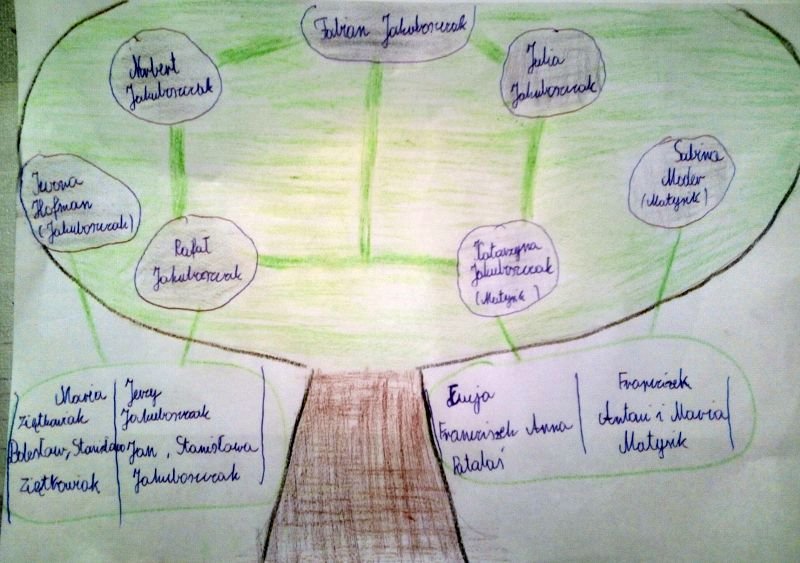 Fabian Jakubowczak
Norbert
Jakubowczak
Julia
Jakubowczak
Iwona
Hofman
(Jakubowczak)
Sabina
Moder
(Matysik)
Rafał
Jakubowczak
Katarzyna
Jakubowczak
(Matysik)
Maria
Ziętkowiak
Bolesław, Stanisława
Ziętkowiak
Jerzy
Jakubowczak
Jan, Stanisława
Jakubowczak
Łucja
Franciszek Anna
Patalaś
Franciszek
Antoni i Maria
Matysik